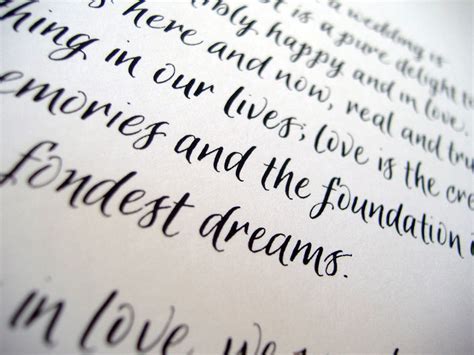 a wedding is
is a pure delight
happy and in love,
here and now, real and
in our lives; love is the
and the foundation
fondest dreams.
in love,